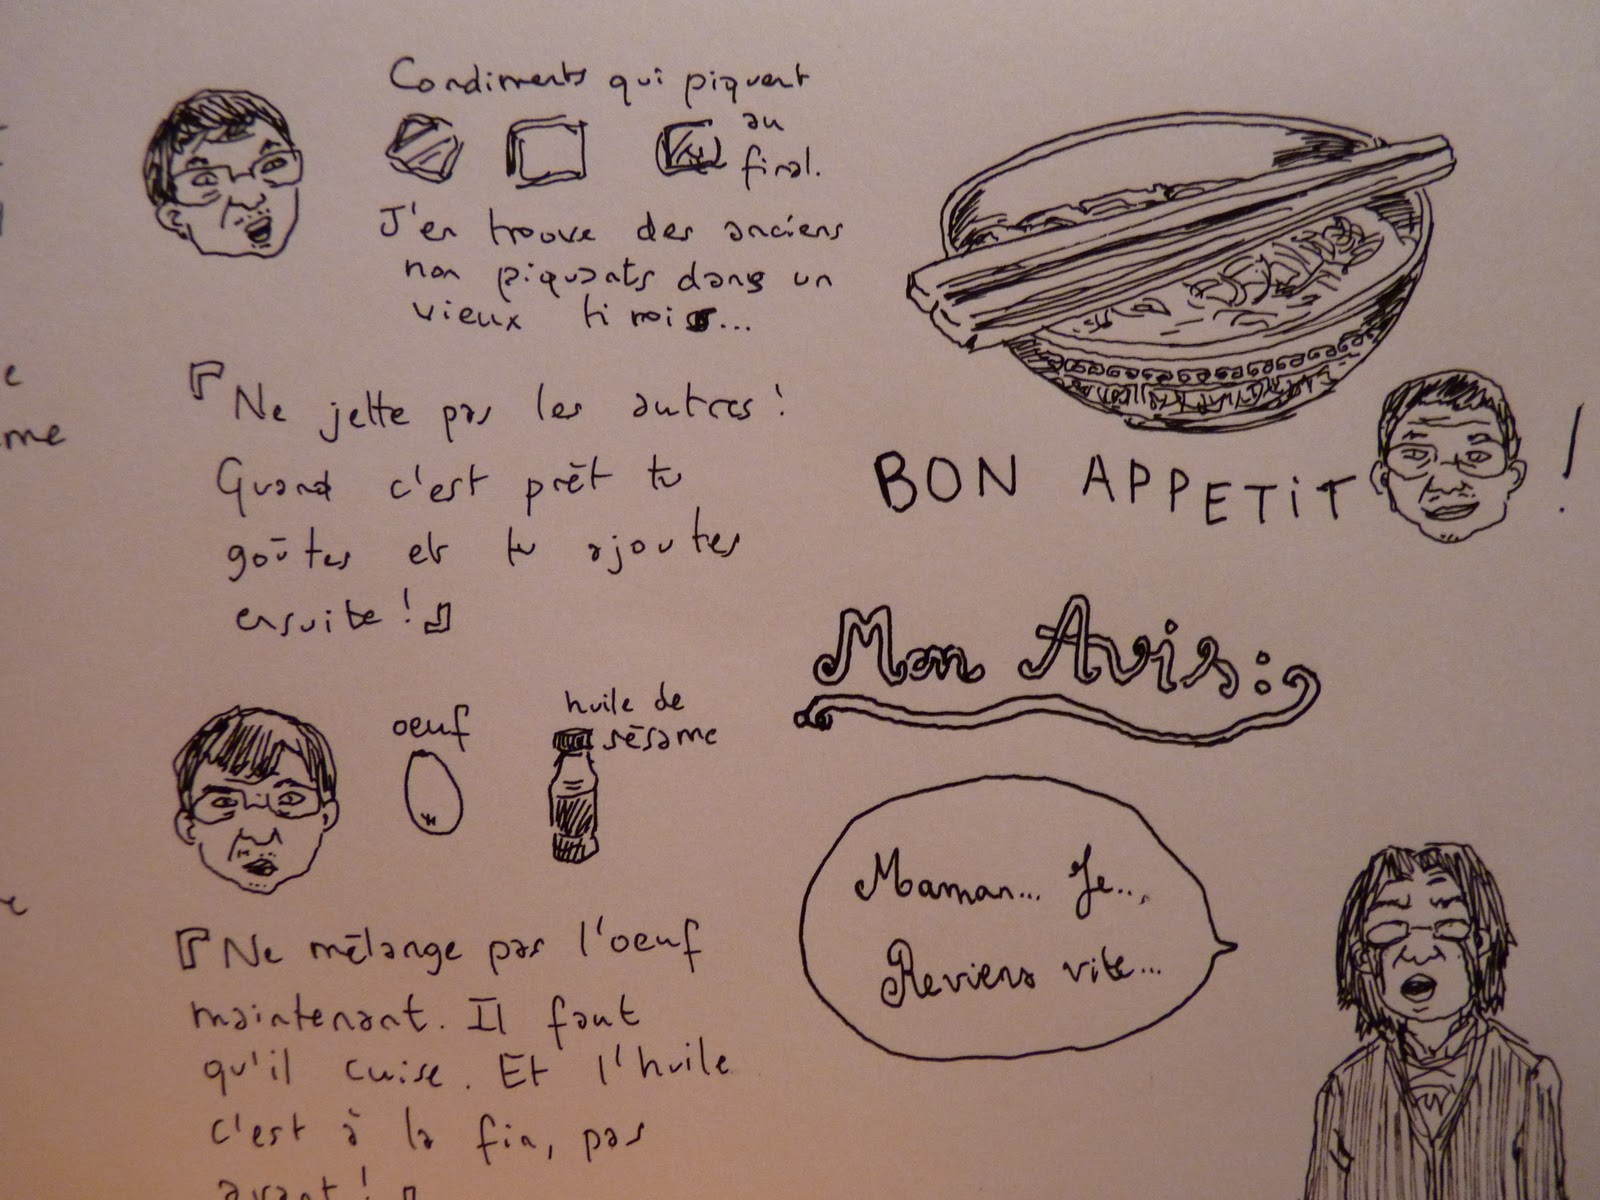 Condiments qui piquent
au
final.
J'en trouve des anciens
non piquants dans un
vieux tiroir...
『Ne jette pas les autres!
Quand c'est prêt tu
goûtes et tu ajoutes
ensuite!』
oeuf
huile de
sésame
『Ne mélange pas l'oeuf
maintenant. Il faut
qu'il cuise. Et l'huile
c'est à la fin, pas
avant!』
BON APPETiT !
Mon Avis:
Maman... Je...
Reviens vite...
me